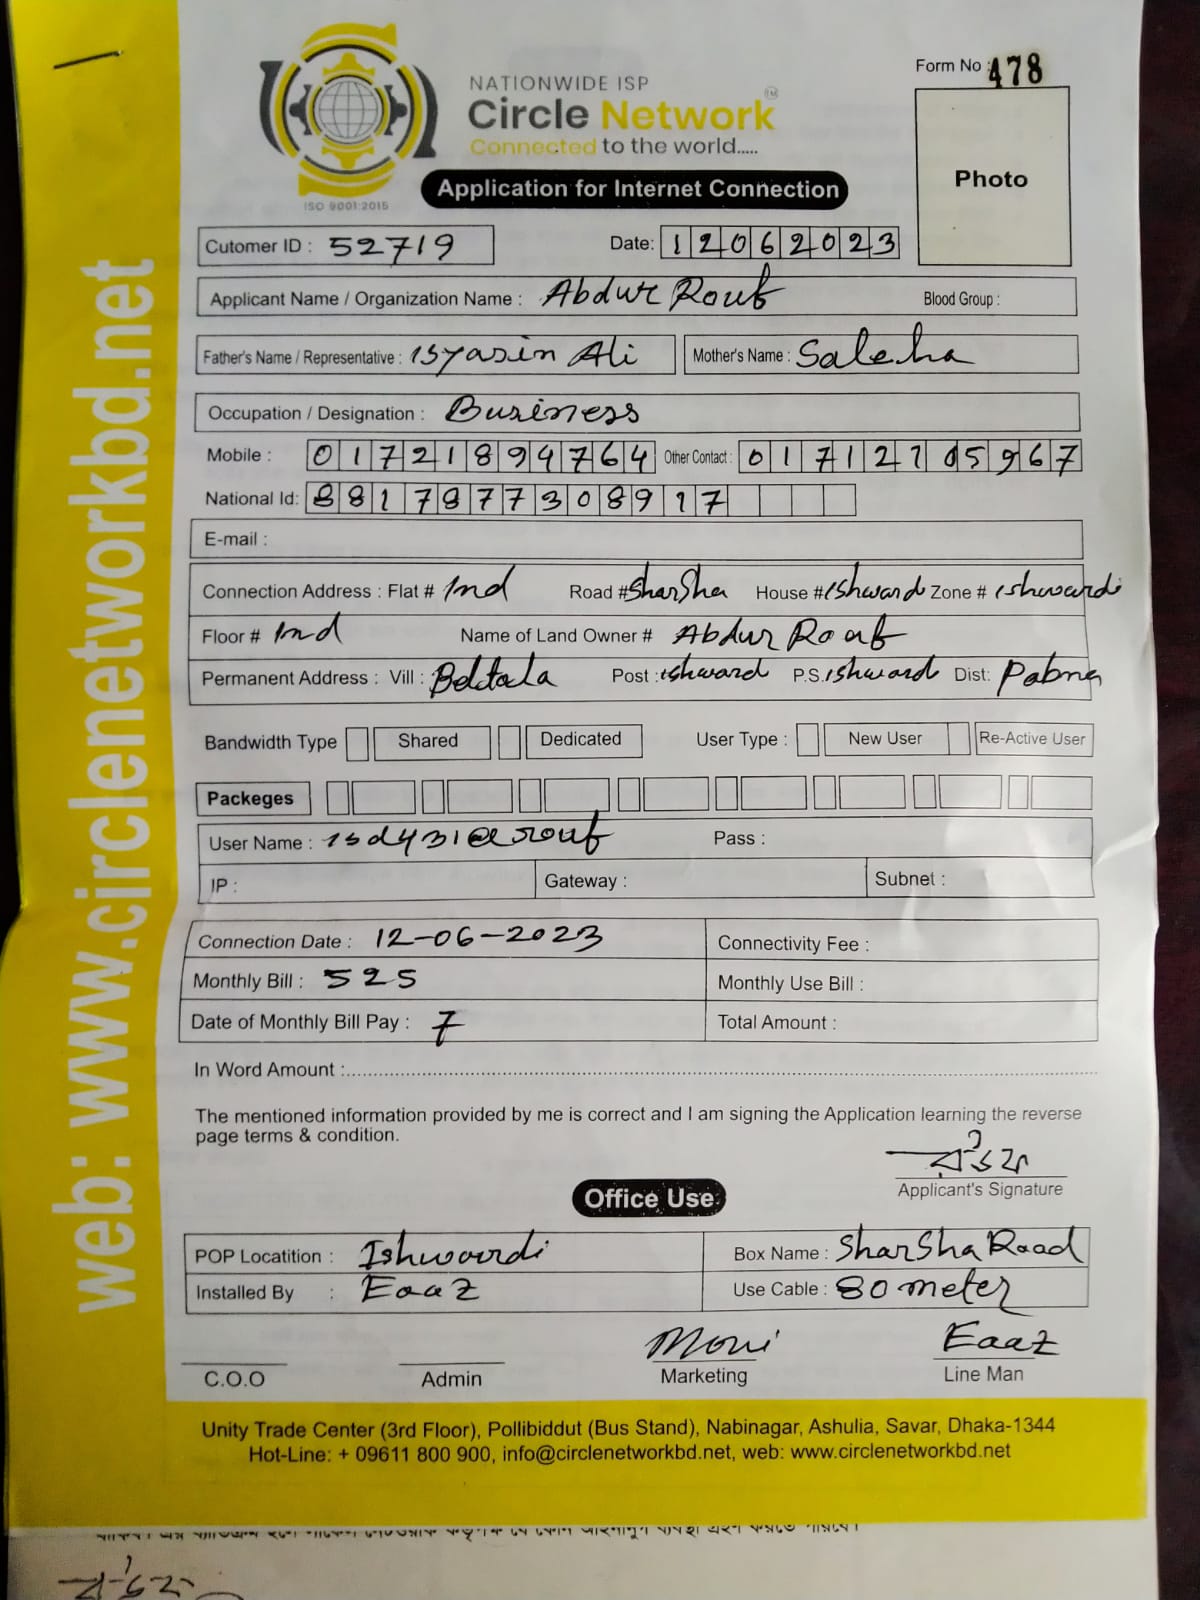 web: www.circlenetworkbd.net
NATIONWIDE ISP
Circle Network TM
Connected to the world.....
ISO 9001:2015
Application for Internet Connection
Form No : 478
Photo
Cutomer ID : 52719 Date: 12062023
Applicant Name / Organization Name : Abdur Rouf Blood Group :
Father's Name / Representative : Isyasin Ali Mother's Name : Saleha
Occupation / Designation : Business
Mobile : 01721894764 Other Contact : 01712705967
National Id: 8817877308917
E-mail :
Connection Address : Flat # 1nd Road # SharSha House # Ishward Zone # Ishwardi
Floor # 1nd Name of Land Owner # Abdur Rouf
Permanent Address : Vill : Post : ishward P.S. Ishward Dist: Pabna
Bandwidth Type Shared Dedicated User Type : New User Re-Active User
Packeges
User Name : Pass :
IP : Gateway : Subnet :
Connection Date : 12-06-2023 Connectivity Fee :
Monthly Bill : 525 Monthly Use Bill :
Date of Monthly Bill Pay : 7 Total Amount :
In Word Amount :
The mentioned information provided by me is correct and I am signing the Application learning the reverse
page terms & condition.
Applicant's Signature
Office Use
POP Locatition : Ishwardi Box Name : SharSha Road
Installed By : Eaaz Use Cable : 80 meter
Moni Eaaz
C.O.O Admin Marketing Line Man
Unity Trade Center (3rd Floor), Pollibiddut (Bus Stand), Nabinagar, Ashulia, Savar, Dhaka-1344
Hot-Line: + 09611 800 900, info@circlenetworkbd.net, web: www.circlenetworkbd.net